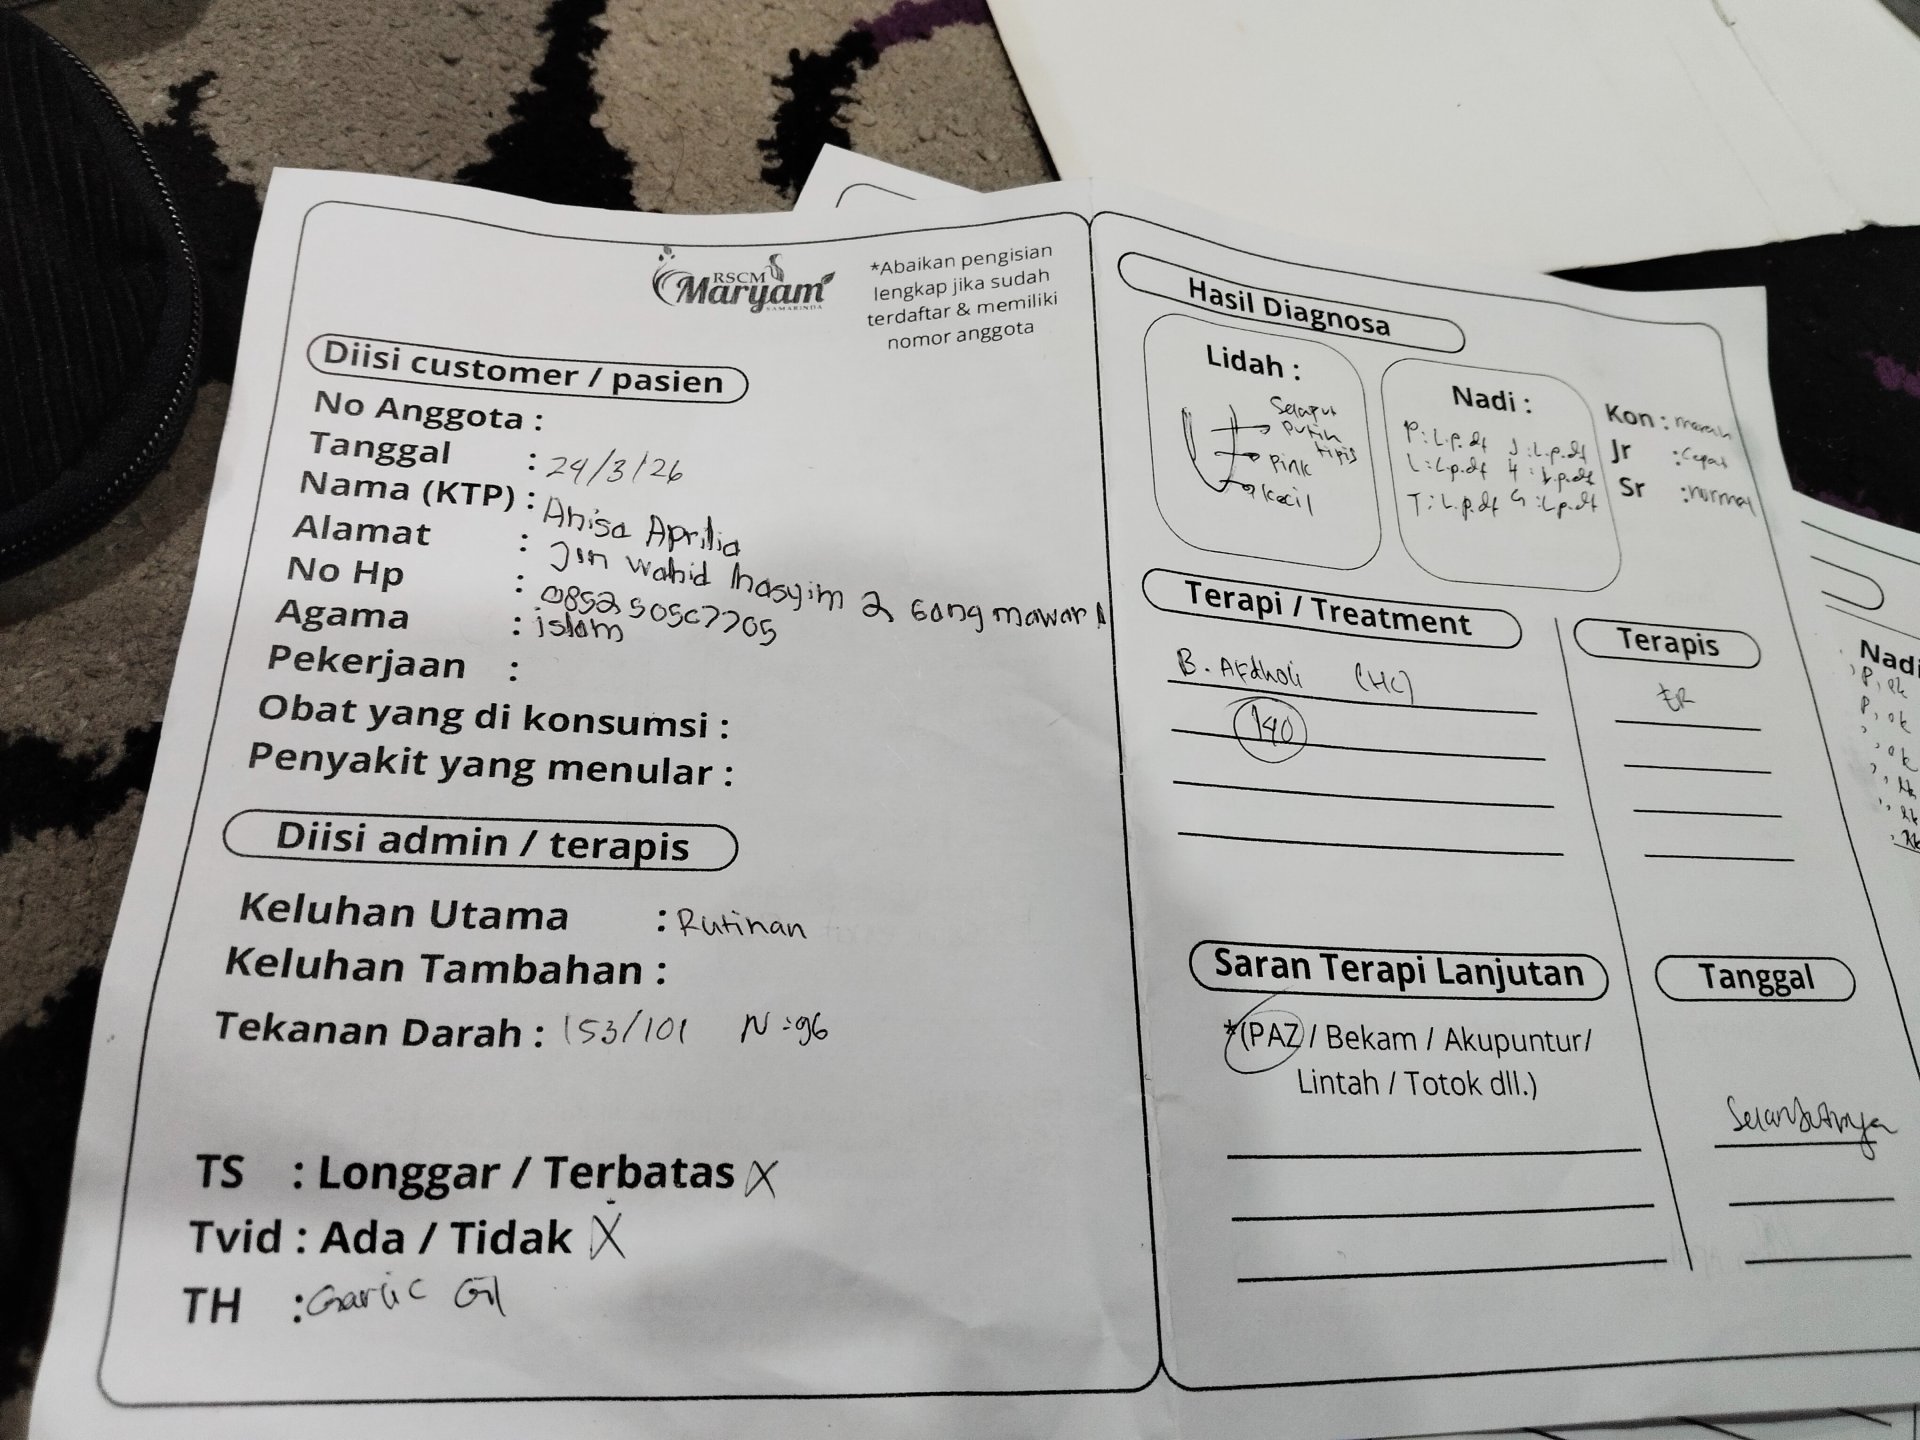 RSCM
Maryam
SAMARINDA
*Abaikan pengisian
lengkap jika sudah
terdaftar & memiliki
nomor anggota
Diisi customer / pasien
No Anggota :
Tanggal : 24/3/26
Nama (KTP) : Anisa Aprilia
Alamat : Jln wahid hasyim 2 Gang mawar
No Hp :
Agama : islam
Pekerjaan :
Obat yang di konsumsi :
Penyakit yang menular :
Diisi admin / terapis
Keluhan Utama : Rutinan
Keluhan Tambahan :
Tekanan Darah : 153/101 N : 96
TS : Longgar / Terbatas X
Tvid : Ada / Tidak X
TH : Garlic Oil
Hasil Diagnosa
Lidah :
Selaput
putih
tipis
Pink
kecil
Nadi :
P : L.p.df J : L.p.df
L : L.p.df H : L.p.df
T : L.p.df G : L.p.df
Kon : merah
Jr : Cepat
Sr : normal
Terapi / Treatment
B. Afdholi (HC)
140
Terapis
Saran Terapi Lanjutan
*(PAZ / Bekam / Akupuntur/
Lintah / Totok dll.)
Tanggal
Selanjutnya
Nadi